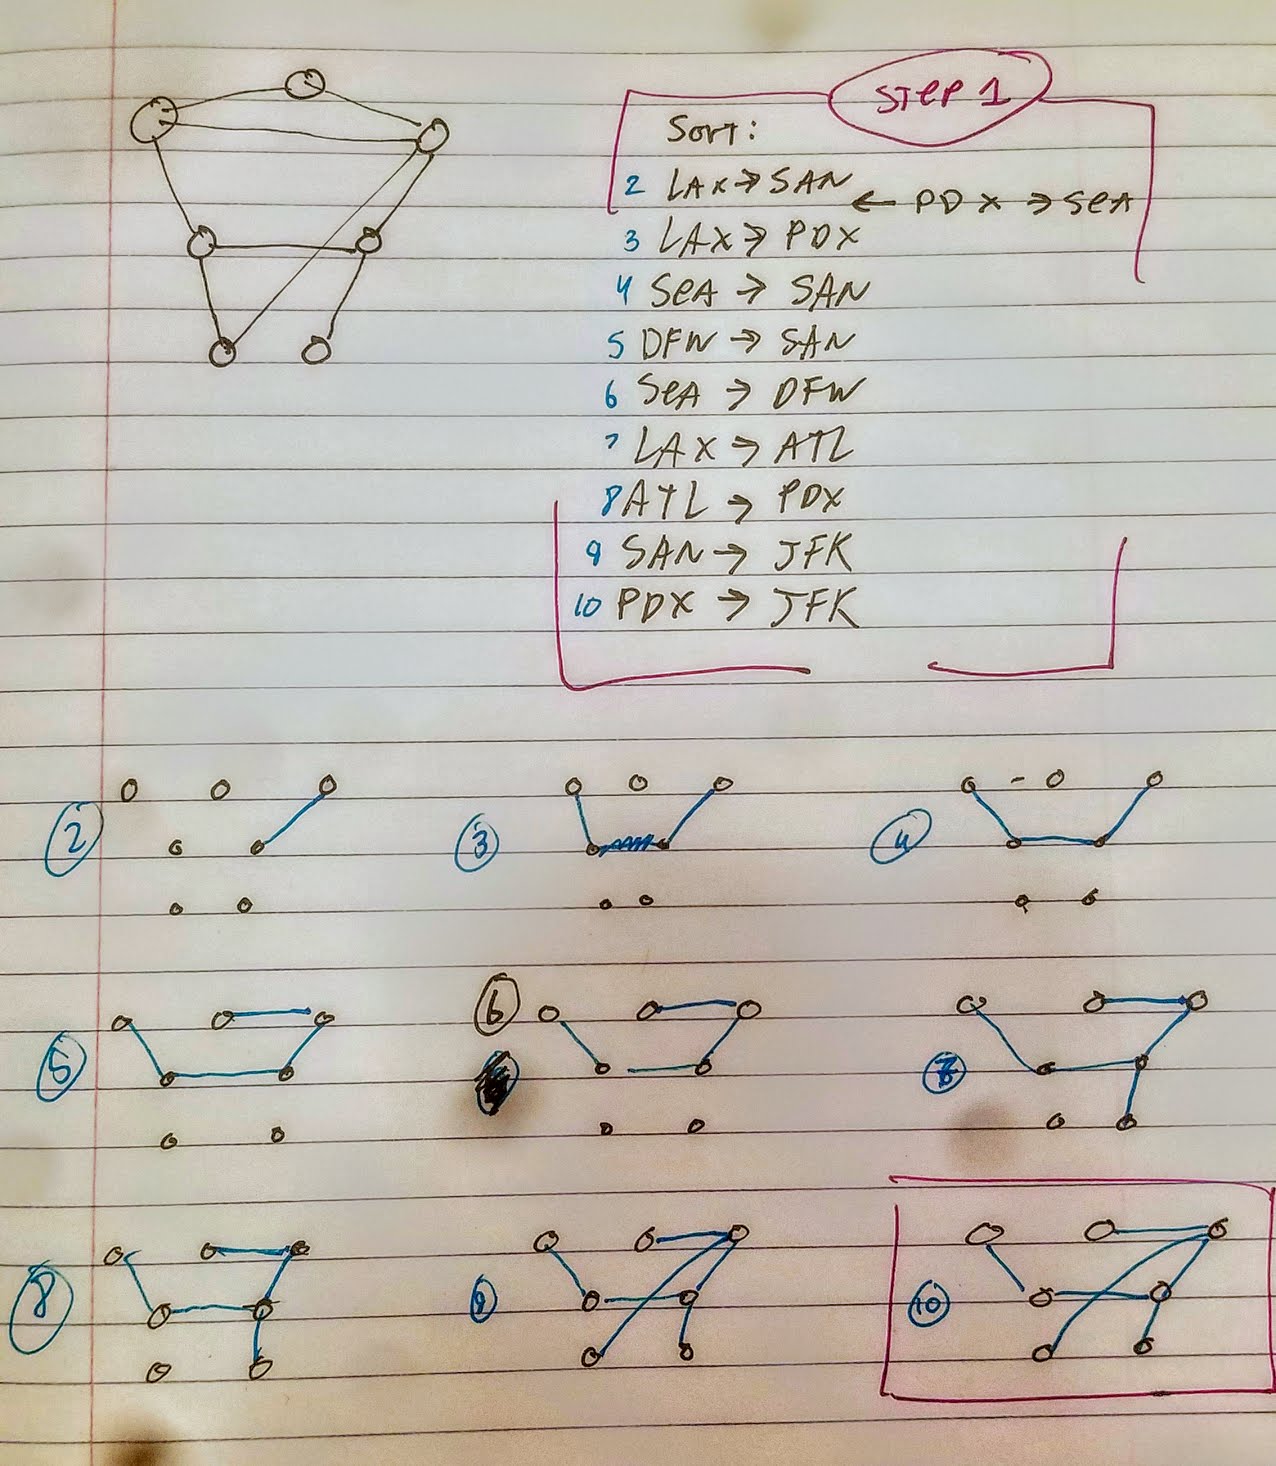 STEP 1
Sort:
2 LAX → SAN
← PDX → SEA
3 LAX → PDX
4 SEA → SAN
5 DFW → SAN
6 SEA → DFW
7 LAX → ATL
8 ATL → PDX
9 SAN → JFK
10 PDX → JFK
2 3 4
5 6 7
8 9 10